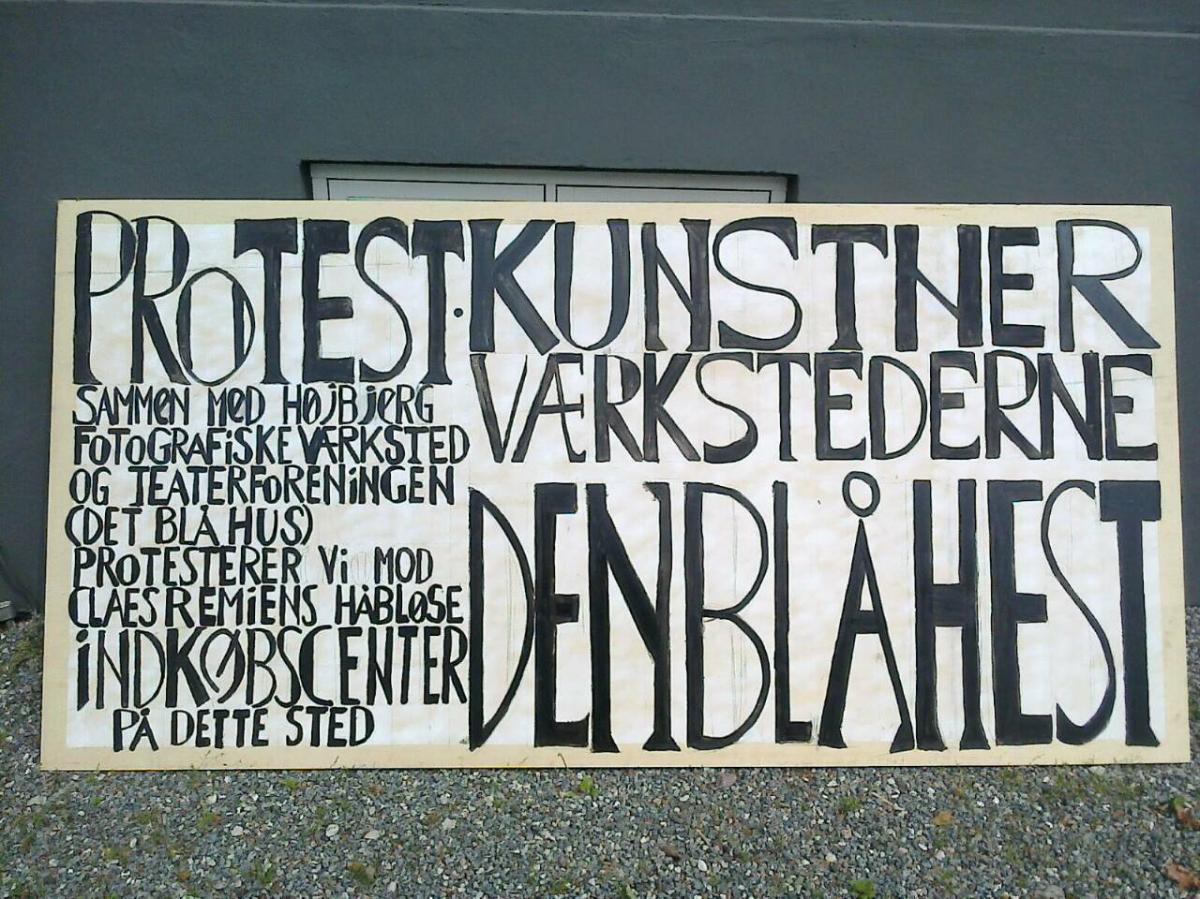 PROTEST·
SAMMEN MED HØJBJERG
FOTOGRAFISKE VÆRKSTED
OG TEATERFORENINGEN
(DET BLÅ HUS)
PROTESTERER Vi MOD
CLAES REMIENS HÅBLØSE
iNDKØBSCENTER
PÅ DETTE STED
KUNSTNER
VÆRKSTEDERNE
DEN BLÅ HEST